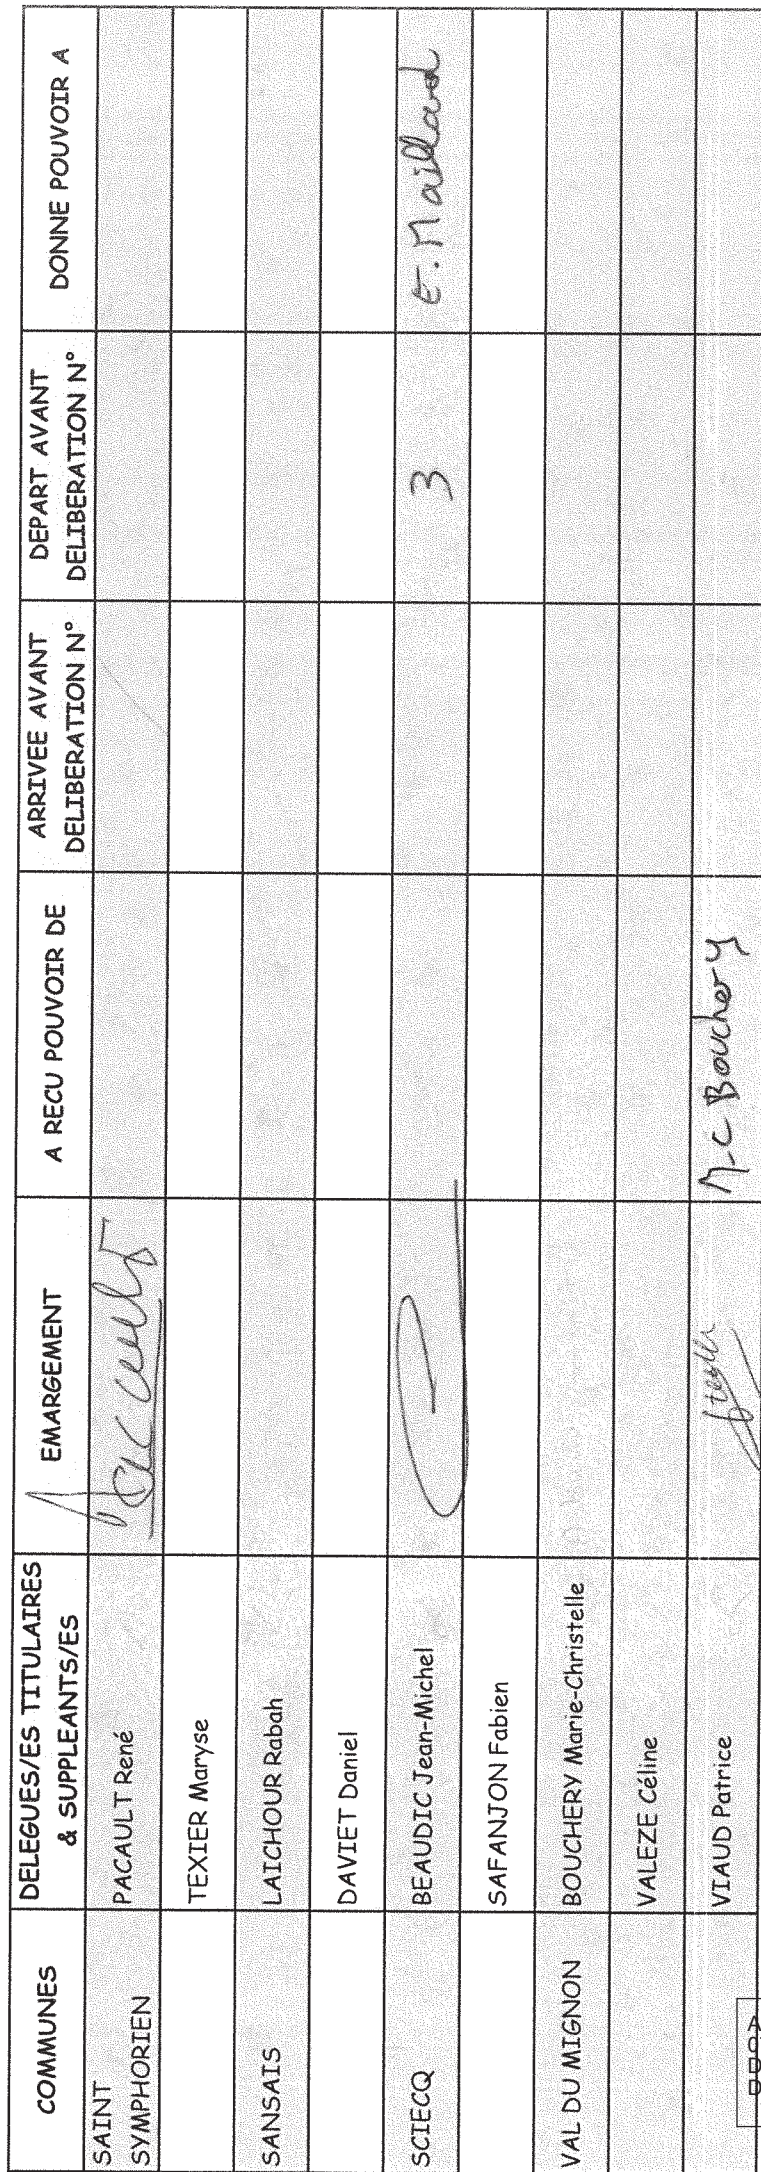 COMMUNES
DELEGUES/ES TITULAIRES
& SUPPLEANTS/ES
EMARGEMENT
A RECU POUVOIR DE
ARRIVEE AVANT
DELIBERATION N°
DEPART AVANT
DELIBERATION N°
DONNE POUVOIR A
SAINT
SYMPHORIEN
PACAULT René
Pacault
TEXIER Maryse
SANSAIS
LAICHOUR Rabah
DAVIET Daniel
SCIECQ
BEAUDIC Jean-Michel
3
E. Maillard
SAFANJON Fabien
VAL DU MIGNON
BOUCHERY Marie-Christelle
VALEZE Céline
VIAUD Patrice
M-C Bouchery